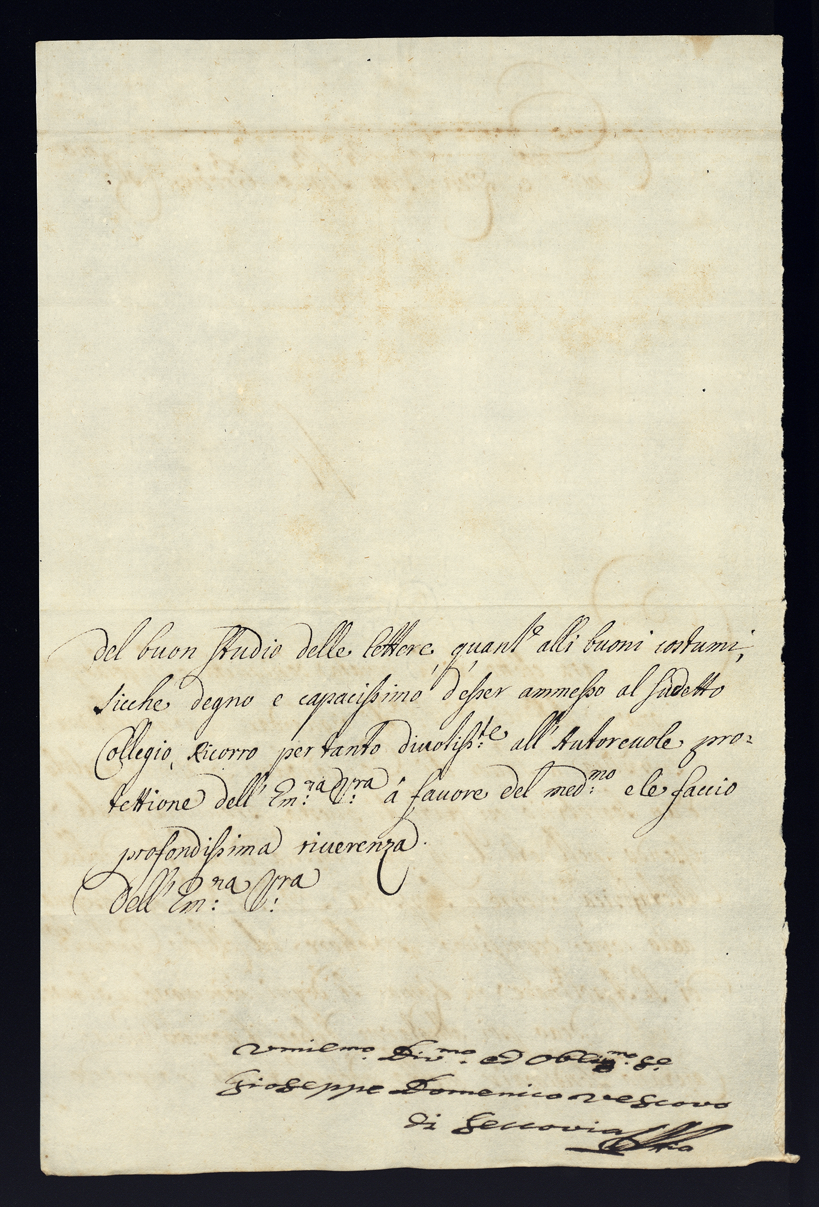 del buon studio delle lettere, quant.o alli buoni costumi,
sicche degno e capacissimo d'esser ammesso al sudetto
Collegio, Ricorro per tanto divotiss.te all'Autorevole pro-
tettione dell'Em.ra V.ra á favore del med.mo e le faccio
profondissima riverenza.
Dell'Em.ra V.ra
Umilmo. Div.mo ed Oblig.mo Se.
Gioseppe Domenico Vescovo
di Seccovia